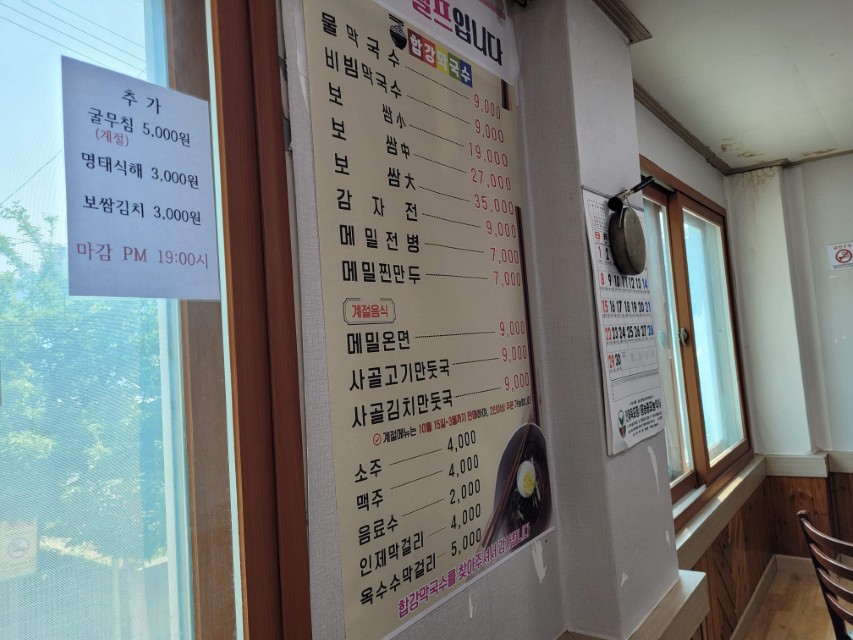 추 가
굴무침 5,000원
(계절)
명태식해 3,000원
보쌈김치 3,000원
마감 PM 19:00시
셀프입니다
합강막국수
물막국수 9,000
비빔막국수 9,000
보 쌈小 19,000
보 쌈中 27,000
보 쌈大 35,000
감 자 전 9,000
메밀전병 7,000
메밀찐만두 7,000
계절음식
메밀온면 9,000
사골고기만둣국 9,000
사골김치만둣국 9,000
계절메뉴는 10월 15일~3월까지 판매하며, 2인이상 주문 가능합니다
소주 4,000
맥주 4,000
음료수 2,000
인제막걸리 4,000
옥수수막걸리 5,000
합강막국수를 찾아주셔서 감사합니다
8 9 10 11 12 13 14
15 16 17 18 19 20 21
22 23 24 25 26 27 28
29 30